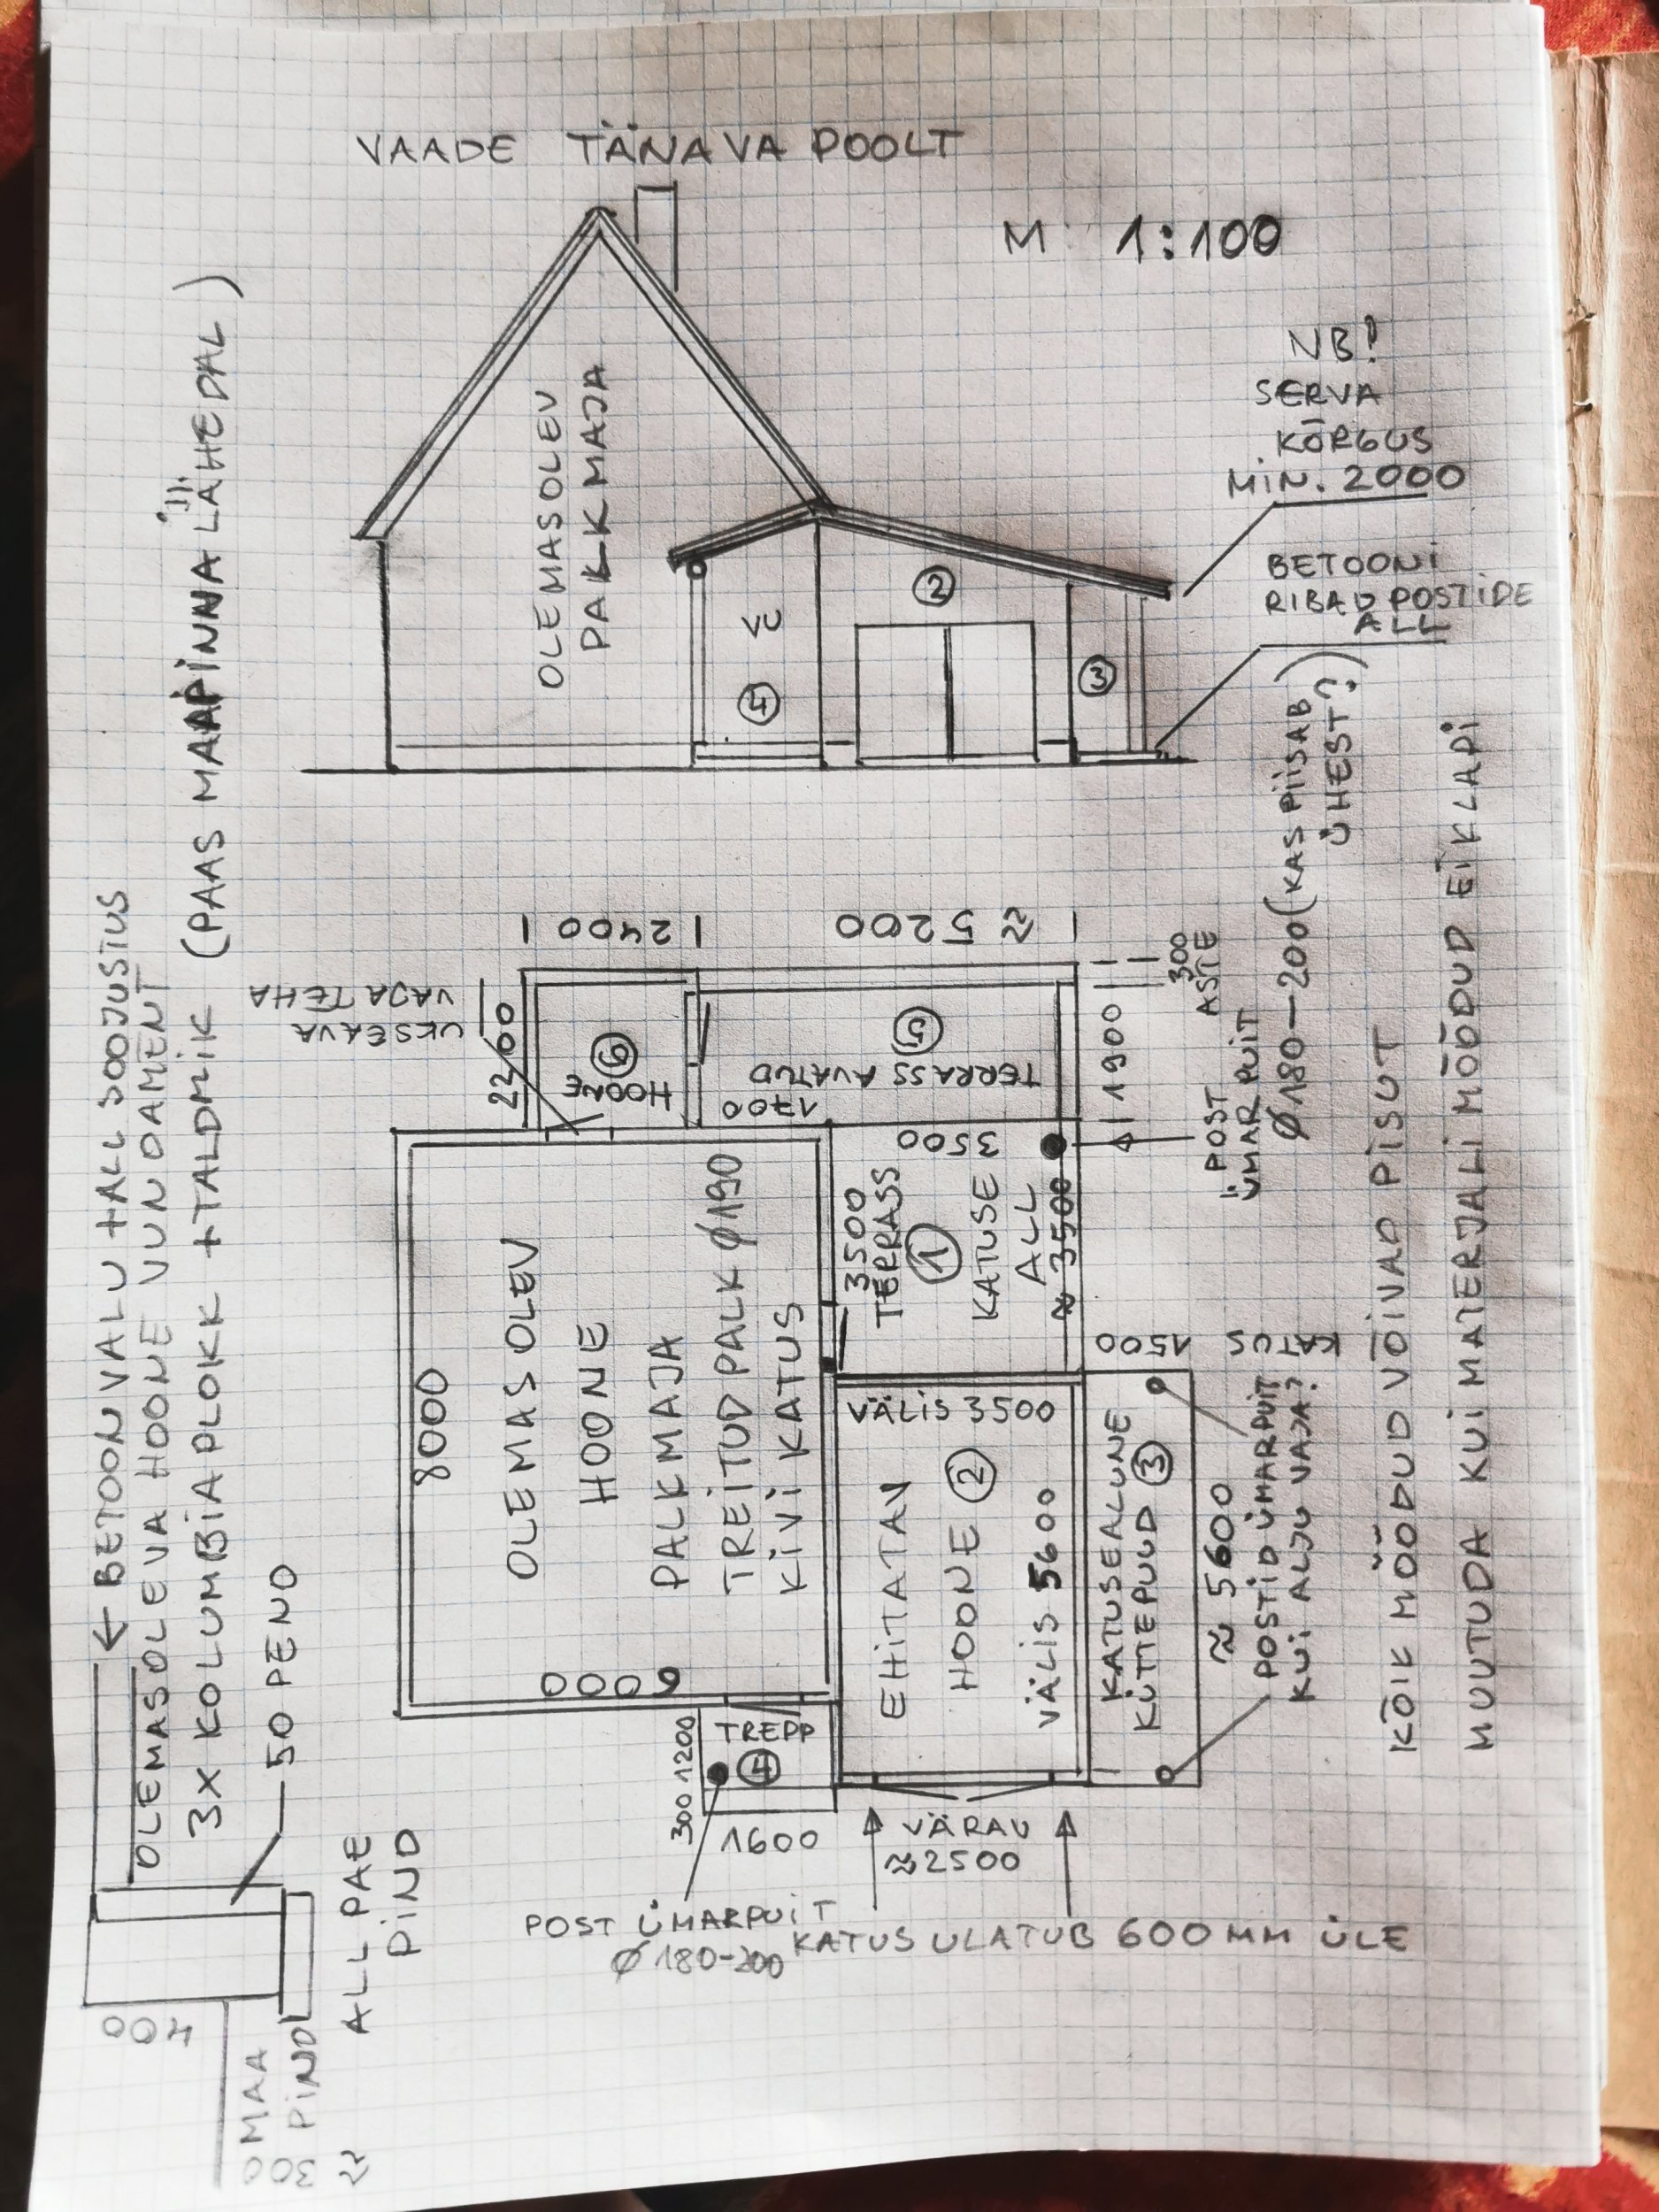 VAADE TÄNAVA POOLT
M 1:100
OLEMASOLEV
PALKMAJA
VU
4
2
3
NB!
SERVA
KÕRGUS
MIN. 2000
BETOONI
RIBA POSTIDE
ALL
← BETOON VALU + ALL SOOJUSTUS
OLEMASOLEVA HOONE VUNDAMENT
3X KOLUMBIAPLOKK + TALDMIK (PAAS MAAPINNA LÄHEDAL)
50 PENO
400
MAA
PIND
≈ 300
ALL PAE
PIND
8000
6000
OLEMASOLEV
HOONE
PALKMAJA
TREITUD PALK Ø190
KIVI KATUS
UKSEAVA
VAJA TEHA
2200
2400
≈ 5200
HOONE
6
TERRASS AVATUD
5
1700
1900
300
ASTE
3500
3500
TERRASS
1
KATUSE
ALL
≈ 3500
POST
ÜMARPUIT
Ø 180-200 (KAS PIISAB
ÜHEST?)
VÄLIS 3500
EHITATAV
HOONE 2
VÄLIS 5600
KATUSEALUNE
KÜTTEPUUD 3
1500
KATUS
≈ 5600
POSTID ÜMARPUIT
KUI ALJU VAJA?
TREPP
4
300 1200
1600
POST ÜMARPUIT
Ø 180-200
VÄRAV
≈2500
KATUS ULATUB 600 MM ÜLE
KÕIK MÕÕDUD VÕIVAD PISUT
MUUTUDA KUI MATERJALI MÕÕDUD EI KLAPI